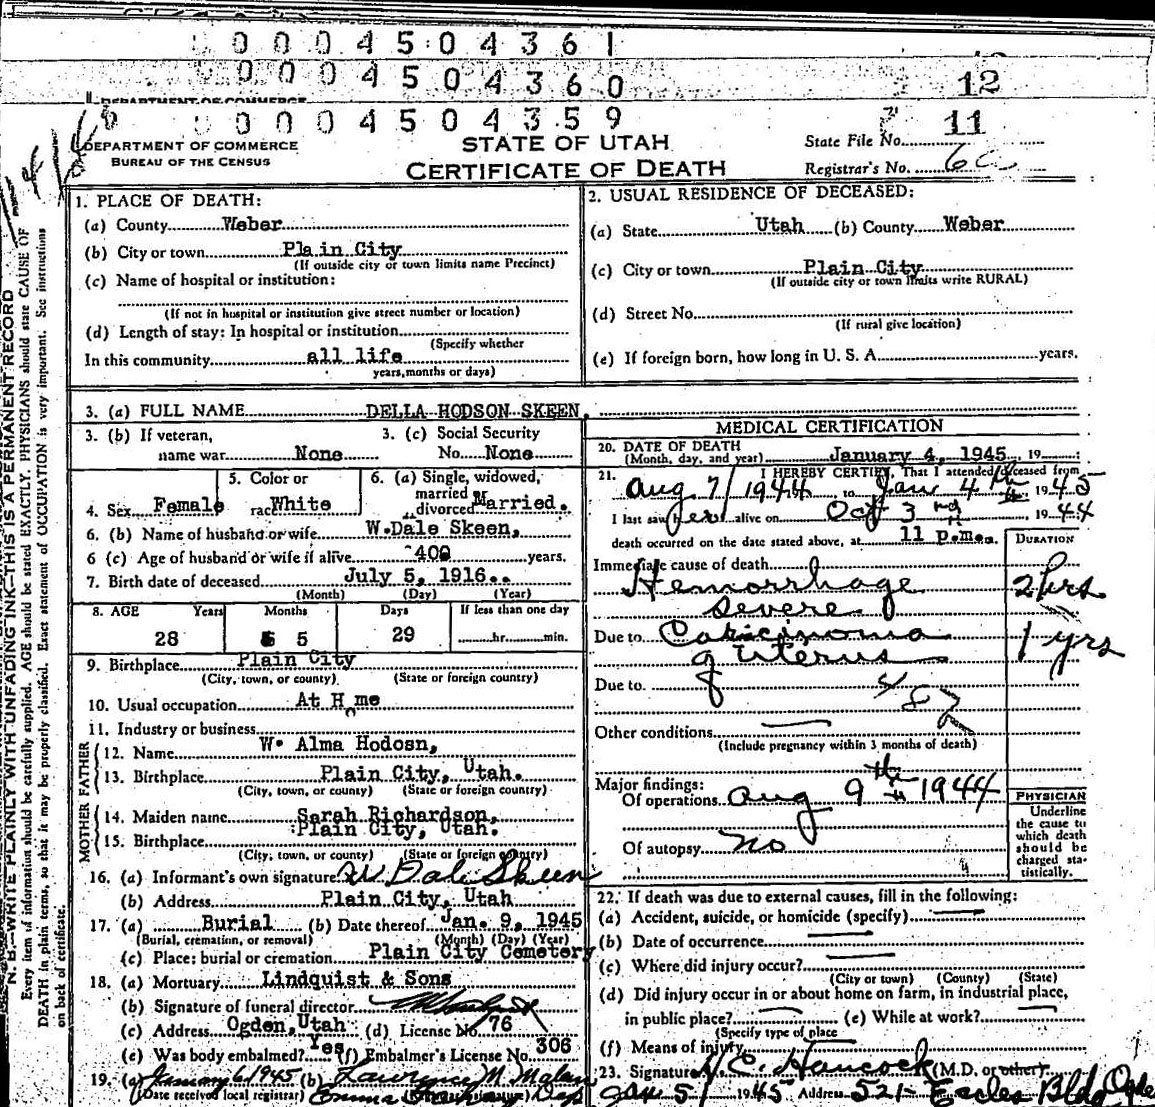 0 0 0 4 5 0 4 3 6 1
0 0 0 4 5 0 4 3 6 0
12
DEPARTMENT OF COMMERCE
0 0 0 4 5 0 4 3 5 9
11
DEPARTMENT OF COMMERCE
BUREAU OF THE CENSUS
STATE OF UTAH
CERTIFICATE OF DEATH
State File No.
Registrar's No.
N. B.—WRITE PLAINLY WITH UNFADING INK—THIS IS A PERMANENT RECORD
Every item of information should be carefully supplied. AGE should be stated EXACTLY. PHYSICIANS should state CAUSE OF
DEATH in plain terms, so that it may be properly classified. Exact statement of OCCUPATION is very important. See instructions
on back of certificate.
1. PLACE OF DEATH:
(a) County Weber
(b) City or town Plain City
(If outside city or town limits name Precinct)
(c) Name of hospital or institution:
(If not in hospital or institution give street number or location)
(d) Length of stay: In hospital or institution
(Specify whether
In this community all life
years, months or days)
2. USUAL RESIDENCE OF DECEASED:
(a) State Utah (b) County Weber
(c) City or town Plain City
(If outside city or town limits write RURAL)
(d) Street No.
(If rural give location)
(e) If foreign born, how long in U. S. A. years.
3. (a) FULL NAME DELLA HODSON SKEEN.
3. (b) If veteran, 3. (c) Social Security
name war None No. None
4. Sex Female
5. Color or
race White
6. (a) Single, widowed,
married
divorced Married.
6. (b) Name of husband or wife W. Dale Skeen,
6 (c) Age of husband or wife if alive 40 years.
7. Birth date of deceased July 5, 1916.
(Month) (Day) (Year)
8. AGE Years Months Days If less than one day
28 5 29 hr. min.
9. Birthplace Plain City
(City, town, or county) (State or foreign country)
10. Usual occupation At Home
11. Industry or business
FATHER
12. Name W. Alma Hodosn,
13. Birthplace Plain City, Utah.
(City, town, or county) (State or foreign country)
MOTHER
14. Maiden name Sarah Richardson,
15. Birthplace Plain City, Utah.
(City, town, or county) (State or foreign country)
16. (a) Informant's own signature W Dale Skeen
(b) Address Plain City, Utah
17. (a) Burial (b) Date thereof Jan. 9, 1945
(Burial, cremation, or removal) (Month) (Day) (Year)
(c) Place: burial or cremation Plain City Cemetery
18. (a) Mortuary Lindquist & Sons
(b) Signature of funeral director
(c) Address Ogden, Utah (d) License No 76
(e) Was body embalmed? Yes (f) Embalmer's License No. 306
19. (a) January 6 1945 (b) Lawrence M. Malan
(Date received local registrar)
MEDICAL CERTIFICATION
20. DATE OF DEATH
(Month, day, and year) January 4, 1945 19
21. I HEREBY CERTIFY, That I attended deceased from
Aug 7 / 1944 to Jan 4th 1945
I last saw her alive on Oct 3rd 1944
death occurred on the date stated above, at 11 p.m.
DURATION
Immediate cause of death
Hemorrhage 2 hrs
severe
Due to Carcinoma 1 yrs
of uterus
Due to.
Other conditions
(Include pregnancy within 3 months of death)
Major findings:
Of operations Aug 9th 1944
Of autopsy no
PHYSICIAN
Underline
the cause to
which death
should be
charged sta-
tistically.
22. If death was due to external causes, fill in the following:
(a) Accident, suicide, or homicide (specify)
(b) Date of occurrence
(c) Where did injury occur?
(City or town) (County) (State)
(d) Did injury occur in or about home on farm, in industrial place,
in public place? (e) While at work?
(Specify type of place
(f) Means of injury
23. Signature C. Hancock (M.D. or other)
Jan 5 / 1945 Address 521 Eccles Bldg Ogde